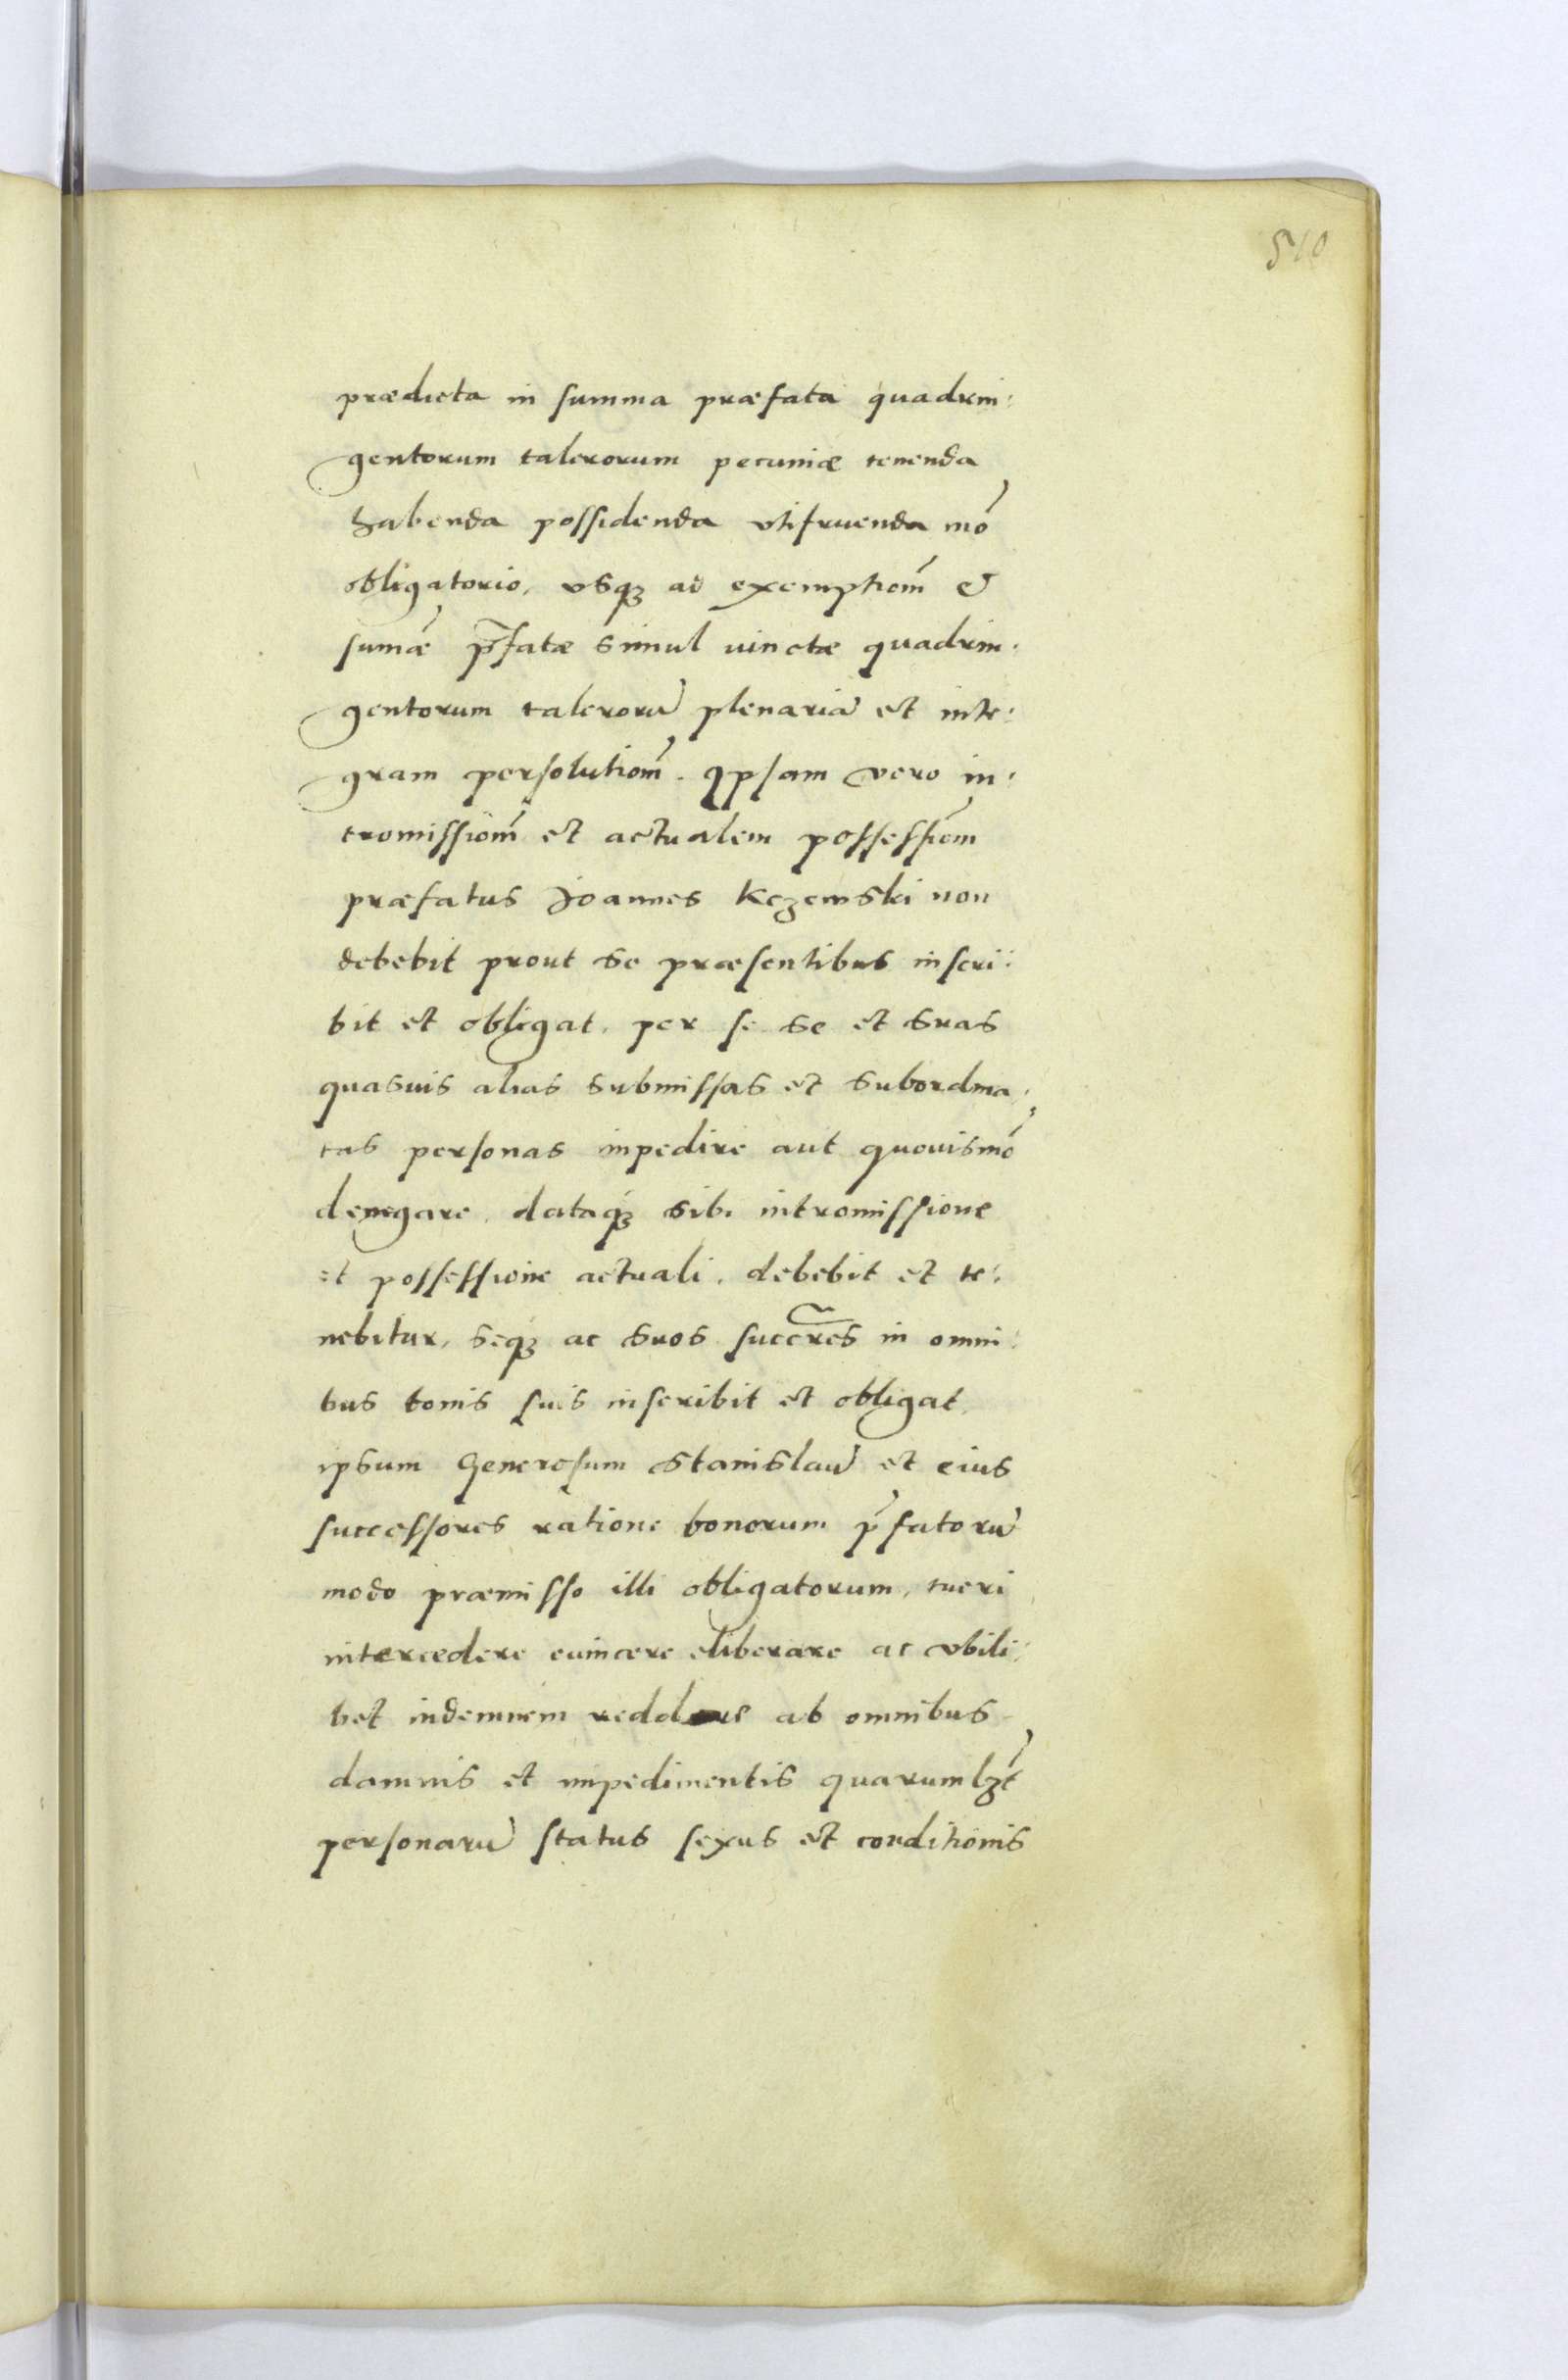 510
prædicta in summa præfata quadrin:
gentorum talerorum pecuniæ tenenda
habenda possidenda vtifruenda mō
obligatorio, vsq₃ ad exemptiom̄ &
sum̄æ p̄fatæ simul iunctæ quadrin:
gentorum taleroru̅ plenaria̅ et inte:
gram persolutiom̄. Ipsam vero in:
tromissiom̄ et actualem possessiōm
præfatus Joannes Kczewski non
debebit prout se præsentibus inscri:
bit et obligat, per se se et suas
quasuis alias submissas et subordina:
tas personas inpedire aut quouismō
denegare, dataq₃ sibi intromissione
et possessione actuali, debebit et te:
nebitur, seq₃ ac suos succr̄es in omni:
bus bonis suis inscribit et obligat,
ipsum Generosum Stanislau̅ et eius
successores ratione bonorum p̄fatoru̅
modo præmisso illi obligatorum, tueri
intercedere euincere eliberare ac vbili:
bet indemnem reddere ab omnibus
damnis et impedimentis quarumlꝫt
personaru̅ status sexus et conditionis